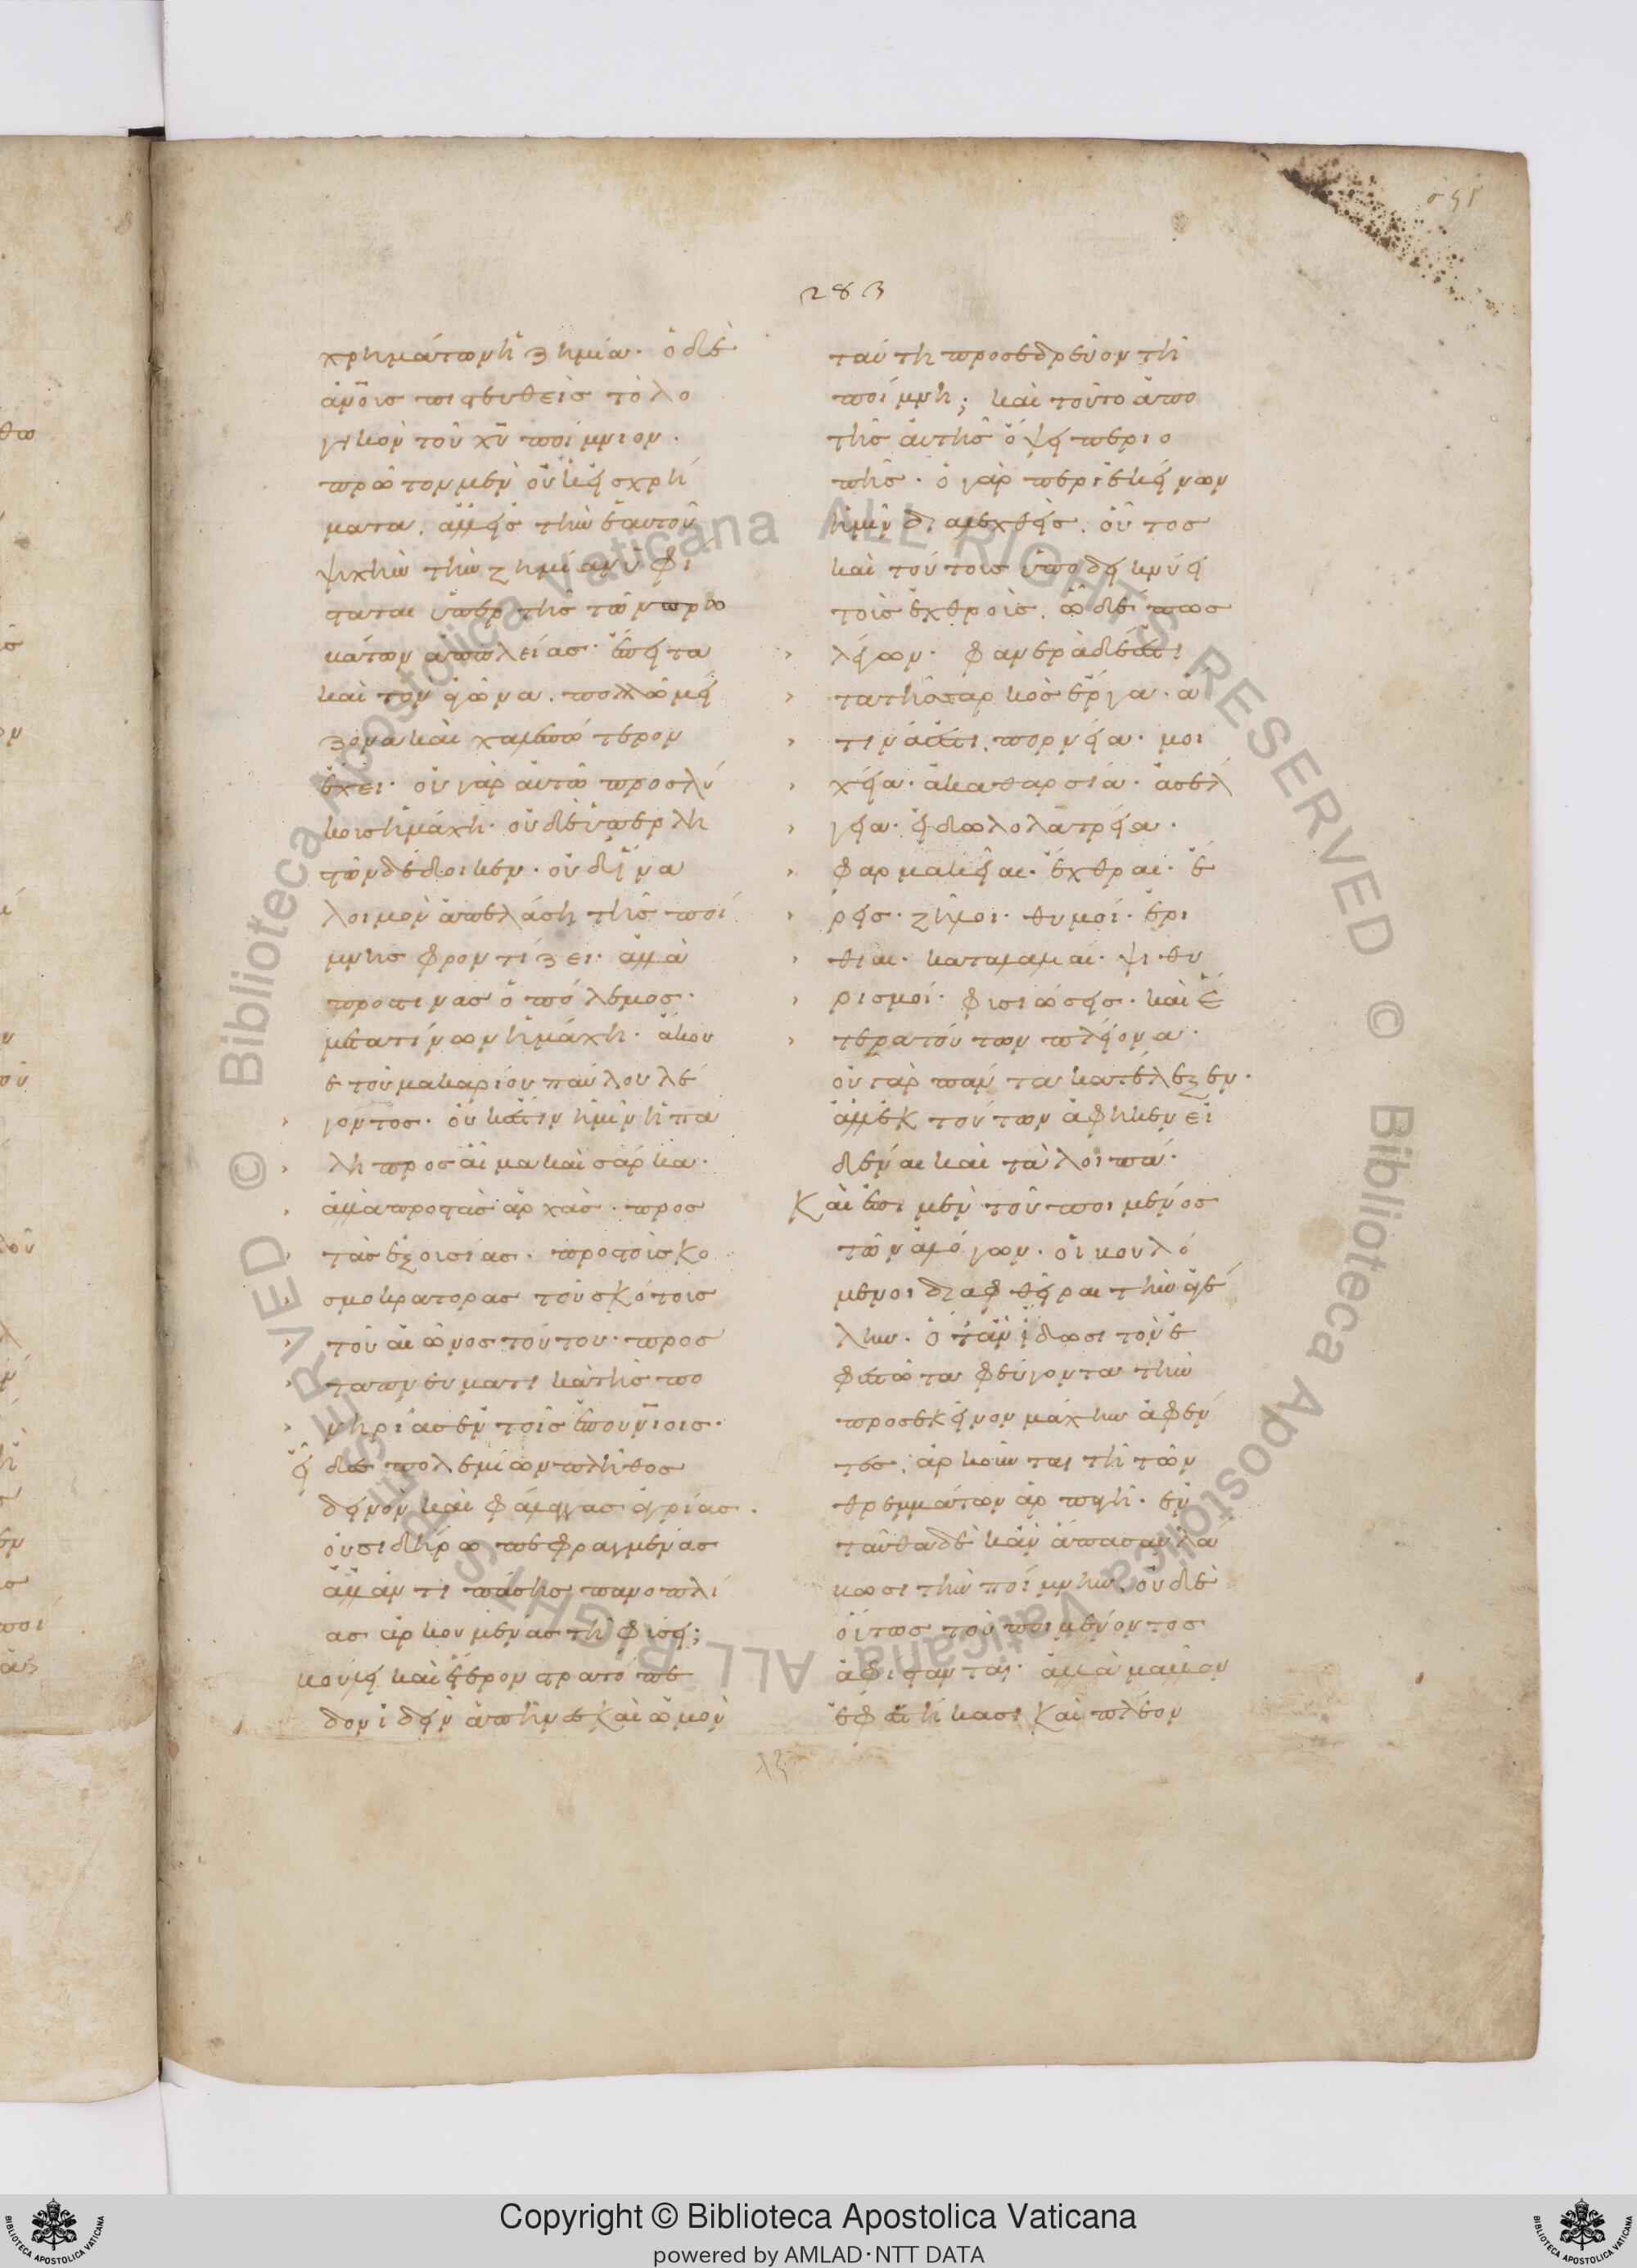 283
χρημάτων ἡ ζημία· ὁ δὲ
ἀνοῖς πιστευθεὶς τὸ λο
γικὸν τοῦ χῦ ποίμνιον·
πρῶτον μὲν οὐκ εἰς χρή
ματα. ἀλλ' εἰς τὴν ἑαυτοῦ
ψυχὴν τὴν ζημίαν ὑφί
σταται ὑπὲρ τῆς τῶν προ
βάτων ἀπωλείας· ἔπειτα
καὶ τὸν ἀγῶνα. πολλῷ μεί
ζονα καὶ χαλεπώτερον
ἔχει· οὐ γὰρ αὐτῷ πρὸς λύ
κοις ἡ μάχη· οὐδὲ ὑπὲρ λη
στῶν δέδοικεν· οὐδ' ἵνα
λοιμὸν ἀπελάση τῆς ποί
μνης φροντίζει· ἀλλὰ
προς τίνας ὁ πόλεμος·
μετα τίνων ἡ μάχη· ἄκου
ε τοῦ μακαρίου παύλου λέ
γοντος· οὐκ ἔστιν ἡμῖν ἡ πά
λη προς αἷμα καὶ σάρκα·
ἀλλὰ προς τὰς ἀρχὰς· προς
τὰς ἐξουσίας· προς τοὺς κο
σμοκρατορας τοῦ σκότους
τοῦ αἰῶνος τούτου· προς
τα πνευματικὰ τῆς πο
νηρίας ἐν τοῖς ἐπουνίοις·
εἶδες πολεμίων πλῆθος
δεινὸν καὶ φάλαγγας ἀγρίας·
οὐ σιδήρω πεφραγμένας
ἀλλ' ἀντι πάσης πανοπλί
ας ἀρκουμένας τῇ φύσει;
βούλει καὶ ἕτερον στρατόπε
δον ἰδεῖν ἀπηνὲς καὶ ὠμὸν
ταύτη προσεδρεῦον τῇ
ποίμνη; καὶ τοῦτο ἀπο
τῆς αὐτῆς ὄψει περιο
πῆς· ὁ γὰρ περὶ ἐκείνων
ἡμῖν διαλεχθεὶς. οὗτος
καὶ τούτοις ὑποδείκνυσι
τοὺς ἐχθροὺς. ὧδέ πως
λέγων· φανερὰ δέ ἐστι
τα τῆς σαρκὸς ἔργα· ἅ
τινά ἐστι. πορνεία· μοι
χεία· ἀκαθαρσία· ἀσέλ
γεια· εἰδωλολατρεία·
φαρμακεῖαι· ἔχθραι· ἔ
ρεις· ζῆλοι· θυμοί· ἐρι
θίαι· καταλαλιαί· ψιθυ
ρισμοί· φυσιώσεις· καὶ ἕ
τερα τούτων πλείονα·
οὐ γὰρ πάντα κατέλεξεν·
ἀλλ' ἐκ τούτων ἀφῆκεν εἰ
δέναι καὶ τὰ λοιπά·
Καὶ ἐπι μὲν τοῦ ποιμένος
τῶν ἀλόγων· οἱ βουλό
μενοι διαφθεῖραι τὴν ἀγέ
λην· ὅταν ἴδωσι τὸν ἐ
φεστῶτα φεύγοντα τὴν
προς ἐκεῖνον μάχην ἀφέν
τες. ἀρκοῦνται τῇ τῶν
θρεμμάτων ἁρπαγῇ· ἐν
ταῦθα δὲ κἂν ἅπασαν λά
βωσι τὴν ποίμνην. οὐδὲ
οὕτως τοῦ ποιμένοντος
ἀφίστανται· ἀλλὰ μᾶλλον
ἐφεστήκασι καὶ πλέον
Copyright © Biblioteca Apostolica Vaticana
powered by AMLAD·NTT DATA